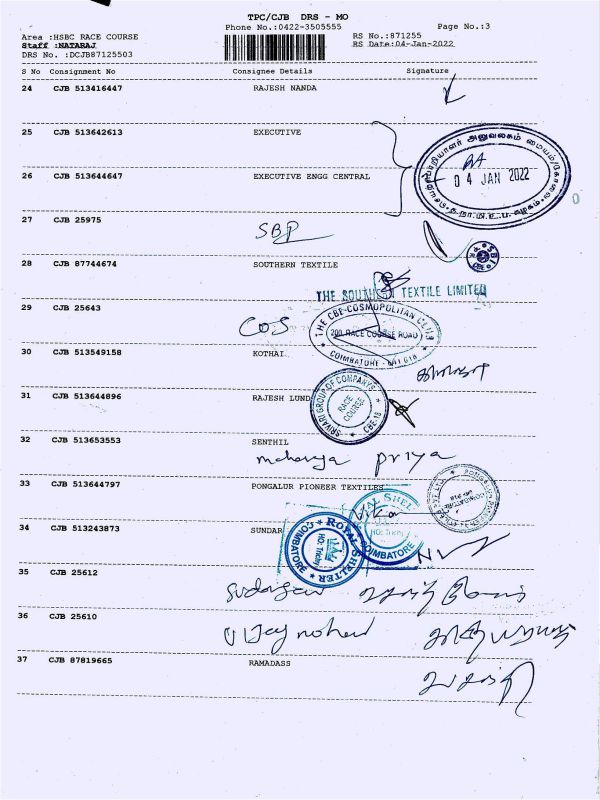 TPC/CJB DRS - MO
Phone No.:0422-3505555 Page No.:3
Area :HSBC RACE COURSE RS No.:871255
Staff :NATARAJ RS Date:04-Jan-2022
DRS No. :DCJB87125503
S No Consignment No Consignee Details Signature
24 CJB 513416447 RAJESH NANDA
25 CJB 513642613 EXECUTIVE
04 JAN 2022
26 CJB 513644647 EXECUTIVE ENGG CENTRAL
27 CJB 25975 SBP
SBI
28 CJB 87744674 SOUTHERN TEXTILE
THE SOUTHERN TEXTILE LIMITED
29 CJB 25643 COS
THE CBE-COSMOPOLITAN CLUB
200, RACE COURSE ROAD
COIMBATORE - 641 018
30 CJB 513549158 KOTHAI
31 CJB 513644896 RAJESH LUND
SRIVARI GROUP OF COMPANYS
RACE COURSE
CBE-18
32 CJB 513653553 SENTHIL
priya
33 CJB 513644797 PONGALUR PIONEER TEXTILES
34 CJB 513243873 SUNDAR
ROYAL SHELTER
HO: Trichy
COIMBATORE
COIMBATORE
35 CJB 25612
36 CJB 25610
37 CJB 87819665 RAMADASS